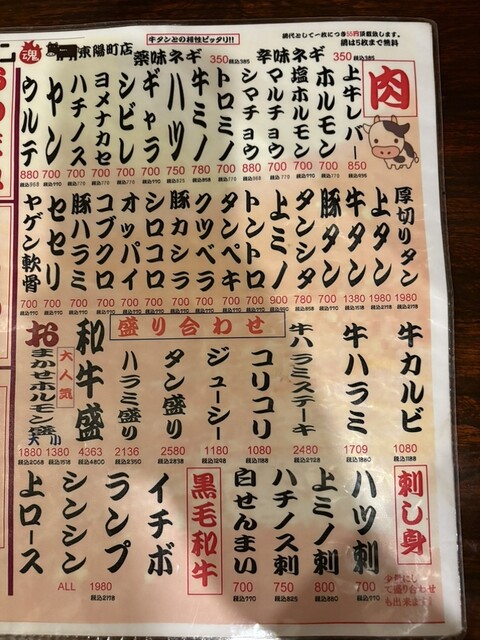 網代として一枚につき55円頂戴致します。
網は5枚まで無料
牛タンとの相性ピッタリ!!
辛味ネギ 350 税込385
薬味ネギ 350 税込385
魂
東陽町店
肉
上牛レバー 850 税込935
ホルモン 700 税込770
塩ホルモン 700 税込770
マルチョウ 700 税込770
シマチョウ 880 税込968
トロミノ 700 税込770
牛ミノ 780 税込858
ハツ 750 税込825
ギャラ 700 税込770
シビレ 700 税込770
ヨメナカセ 700 税込770
ハチノス 700 税込770
ヤン 700 税込770
ウルテ 880 税込968
厚切りタン 1980 税込2178
上タン 1980 税込2178
牛タン 1380 税込1518
豚タン 700 税込770
タンシタ 780 税込858
上ミノ 900 税込990
トントロ 700 税込770
タンペキ 700 税込770
クツベラ 700 税込770
豚カシラ 700 税込770
シロコロ 700 税込770
オッパイ 700 税込770
コブクロ 700 税込770
豚ハラミ 700 税込770
セセリ 700 税込770
ヤゲン軟骨 700 税込770
牛カルビ 1080 税込1188
牛ハラミ 1709 税込1880
牛ハラミステーキ 2480 税込2728
盛り合わせ
コリコリ 1080 税込1188
ジューシー 1180 税込1298
タン盛り 2580 税込2838
ハラミ盛り 2136 税込2350
和牛盛 4363 税込4800
大人気
おまかせホルモン盛
小 1380 税込1518
大 1880 税込2068
刺し身
少量にし
て盛り合わせ
も出来ます!
ハツ刺 700 税込770
上ミノ刺 800 税込880
ハチノス刺 750 税込825
白せんまい 700 税込770
黒毛和牛
イチボ
ランプ
シンシン
上ロース
ALL 1980 税込2178